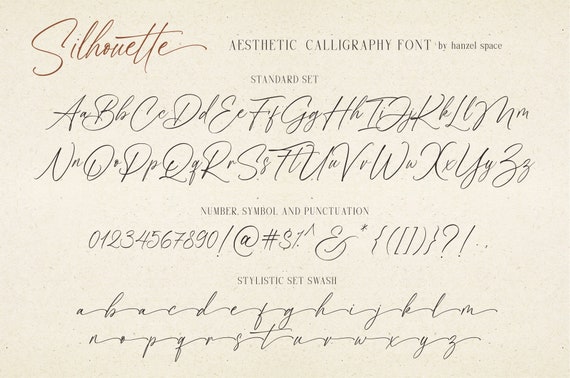 Silhouette
AESTHETIC CALLIGRAPHY FONT by hanzel space
STANDARD SET
AaBbCcDdEeFfGgHhIiJjKkLlMm
NnOoPpQqRrSsTtUuVvWwXxYyZz
NUMBER, SYMBOL AND PUNCTUATION
01234567890!@#$%^&*{([])}?!..
STYLISTIC SET SWASH
a b c d e f g h i j k l m
n o p q r s t u v w x y z